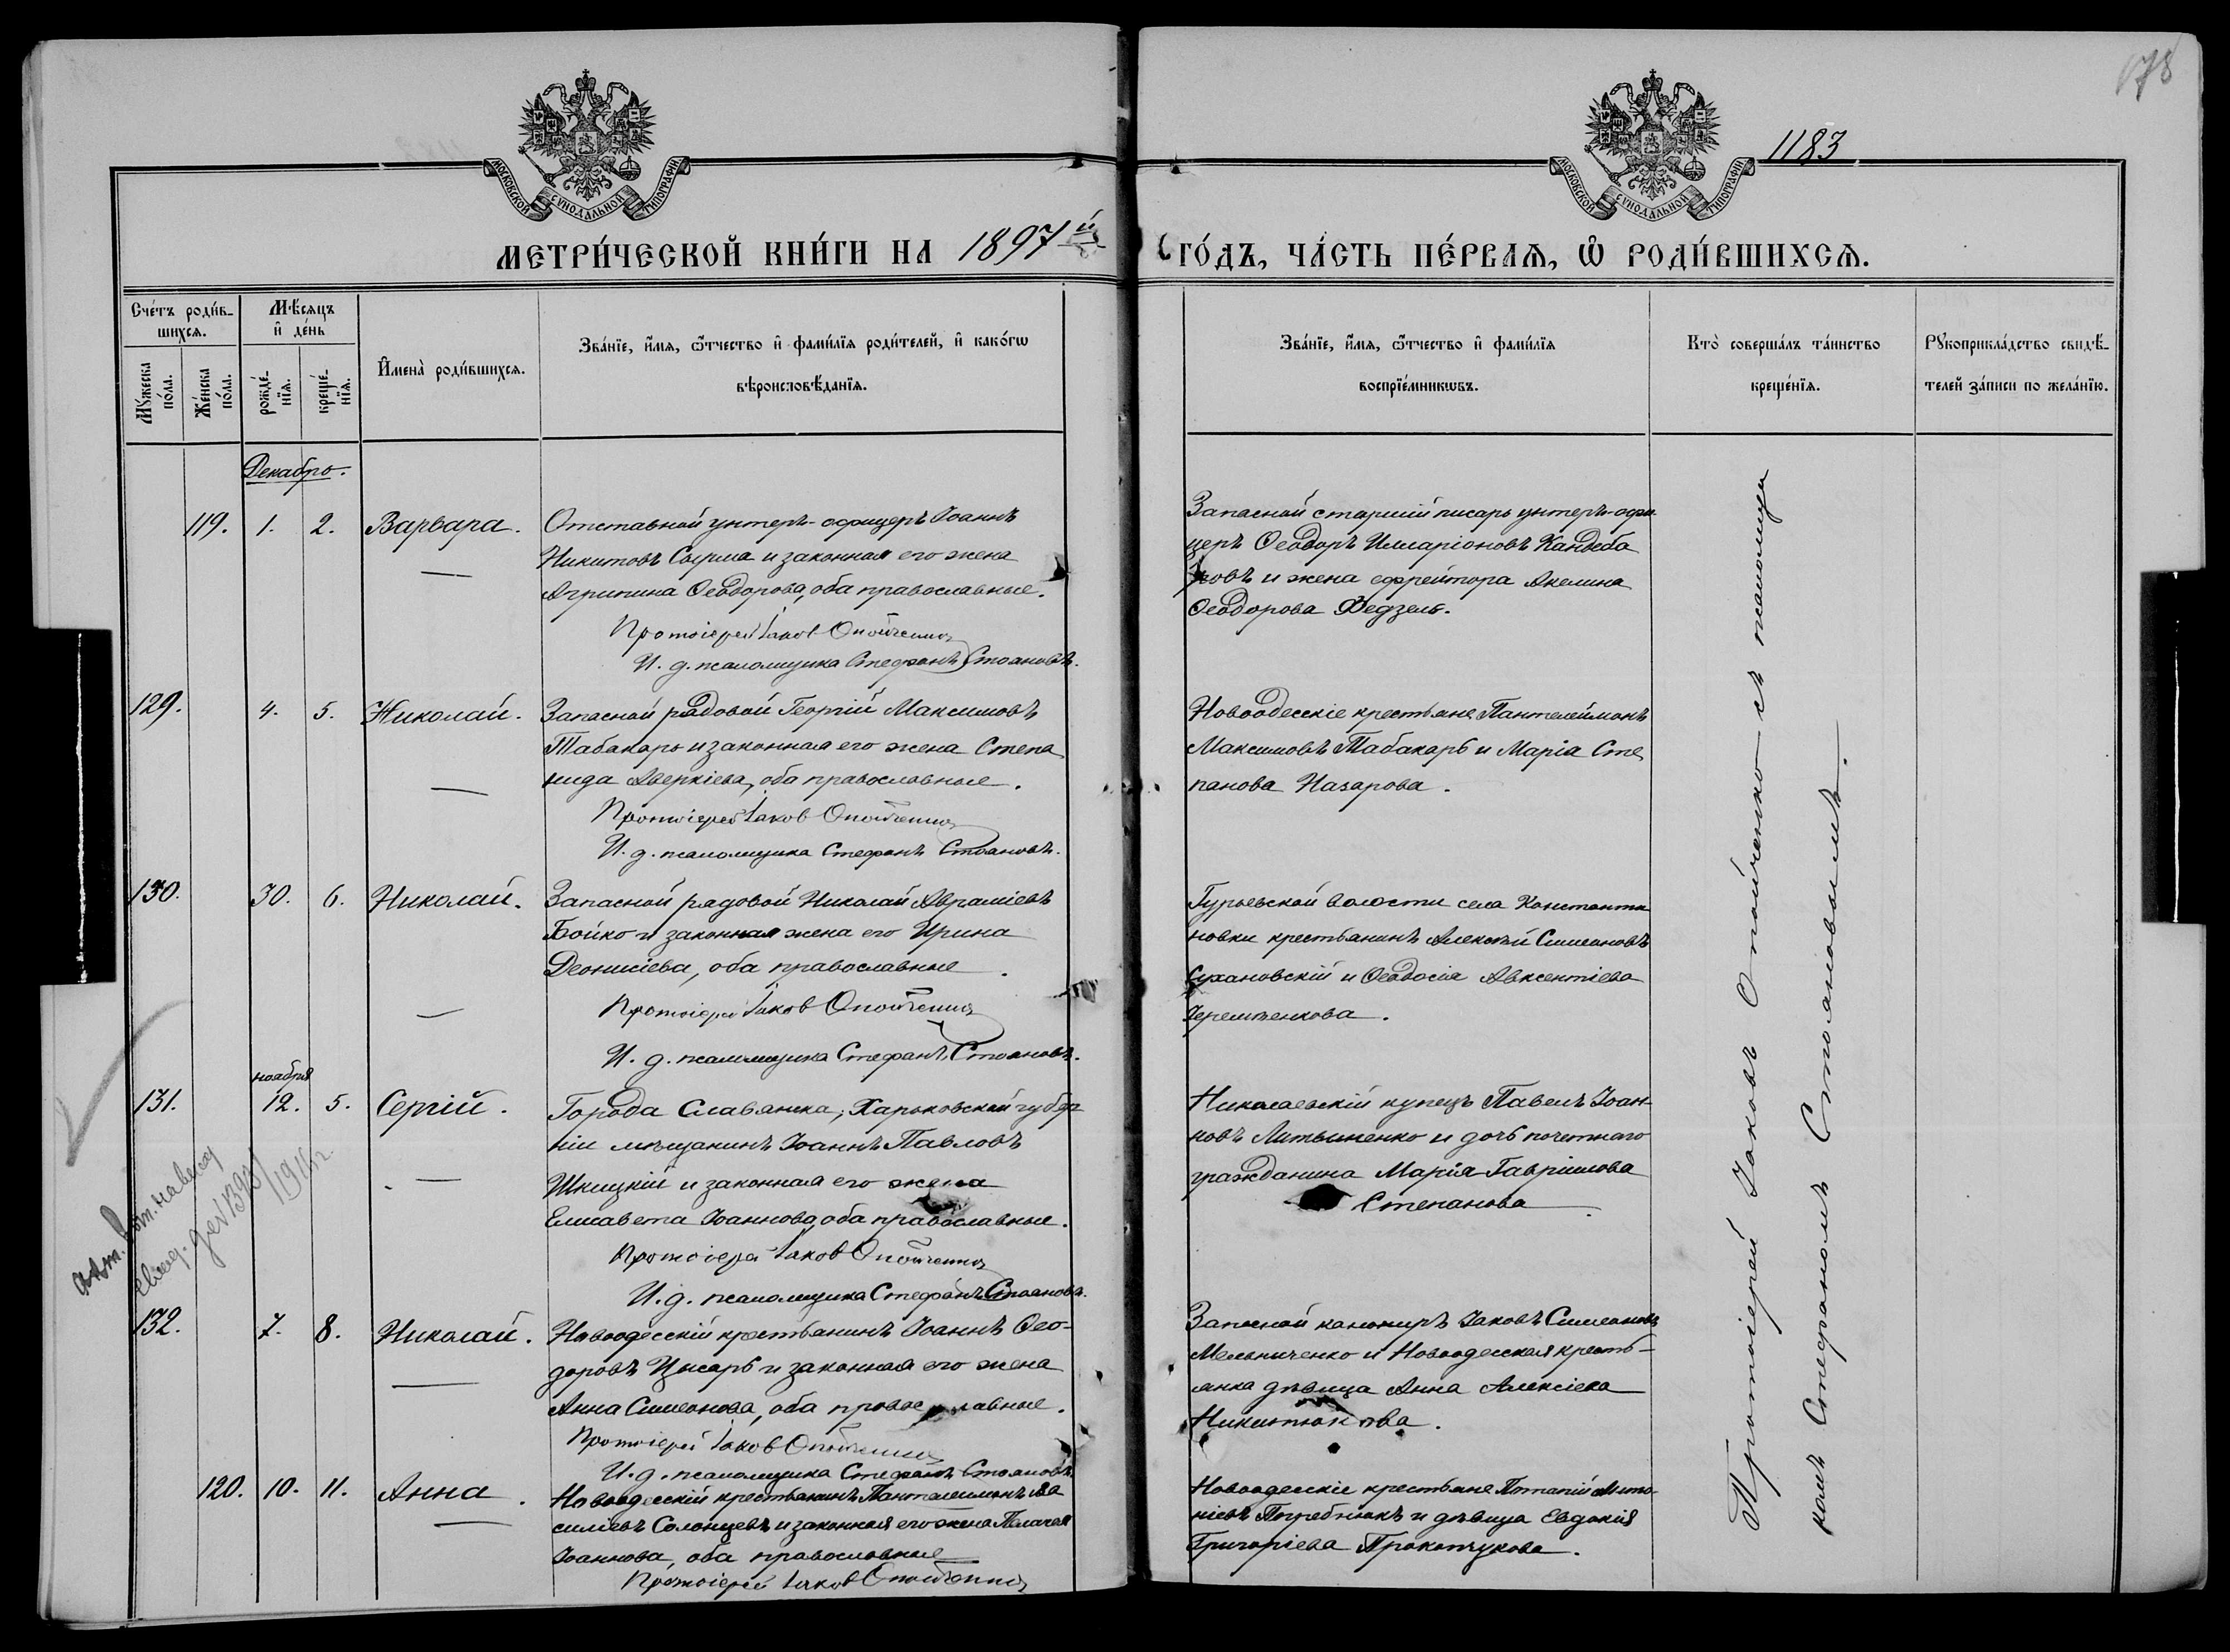 178
1183
МОСКОВСКОЙ СѴНОДАЛЬНОЙ ТИПОГРАФІИ
МОСКОВСКОЙ СѴНОДАЛЬНОЙ ТИПОГРАФІИ
МЕТРИ́ЧЕСКОЙ КНИ́ГИ НА 1897 й
ГО́ДЪ, ЧА́СТЬ ПЕ́РВАѦ, Ѿ РОДИ́ВШИХСѦ.
Сче́тъ роди́в-
шихсѧ.
Мѣ́сѧцъ
и҆ де́нь
Мꙋ́жеска
по́ла.
Же́нска
по́ла.
рожде́-
нїѧ.
креще́-
нїѧ.
И҆мена̀ роди́вшихсѧ.
Зва́нїе, и҆́мѧ, ѻ҆́тчество и҆ фами́лїѧ роди́телей, и҆ како́гѡ
вѣроисповѣ́данїѧ.
Зва́нїе, и҆́мѧ, ѻ҆́тчество и҆ фами́лїѧ
воспрїе́мникѡвъ.
Кто̀ соверша́лъ та́инство
креще́нїѧ.
Рꙋкоприкла́дство свидѣ́-
телей за́писи по жела́нїю.
Декабрь.
119. 1. 2. Варвара.
Отставной унтеръ-офицеръ Іоаннъ
Никитовъ Сырма и законная его жена
Агрипина Ѳеодорова, оба православные.
Протоіерей Іаков Опойченко
И. д. псаломщика Стефанъ Стояновъ.
Запасной старшій писарь унтеръ-офи
церъ Ѳеодоръ Илларіоновъ Кандыба
ровъ и жена ефрейтора Акелина
Ѳеодорова Федзель.
129. 4. 5. Николай.
Запасной рядовой Георгій Максимовъ
Табакарь и законная его жена Степа
нида Аверкіева, оба православные.
Протоіерей Іаков Опойченко
И. д. псаломщика Стефанъ Стояновъ.
Новоодесскіе крестьяне Пантелеймонъ
Максимовъ Табакарь и Марія Сте
панова Назарова.
130. 30. 6. Николай.
Запасной рядовой Николай Авраміевъ
Бойко и законная жена его Ирина
Деонисіева, оба православные.
Протоіерей Іаков Опойченко
И. д. псаломщика Стефанъ Стояновъ.
Гурьевской волости села Константи
новки крестьянинъ Алексѣй Симеоновъ
Сухановскій и Ѳеодосія Авксентіева
Черемшенкова.
ноября
131. 12. 5. Сергій.
Города Славянска, Харьковской губер
ніи мѣщанинъ Іоаннъ Павловъ
Шкицкій и законная его жена
Елисавета Іоаннова, оба православные.
Протоіерей Іаков Опойченко
И. д. псаломщика Стефанъ Стояновъ.
Николаевскій купецъ Павелъ Іоан-
новъ Литвиненко и дочь почетнаго
гражданина Марія Гавріилова
Степанова.
1916 г.
132. 7. 8. Николай.
Новоодесскій крестьянинъ Іоаннъ Ѳео-
доровъ Цысарь и законная его жена
Анна Симеонова, оба православные.
Протоіерей Іаков Опойченко
И. д. псаломщика Стефанъ Стояновъ.
Запасной канониръ Іаковъ Симеоновъ
Мельниченко и Новоодесская кресть-
янка дѣвица Анна Алексіева
Никитюкова.
120. 10. 11. Анна.
Новоодесскій крестьянинъ Пантелеимонъ Ва
силіевъ Солонцевъ и законная его жена Пелагея
Іоаннова, оба православные
Протоіерей Іаков Опойченко
Новоодесскіе крестьяне Потапій Анто
ніевъ Погребнюкъ и дѣвица Евдокія
Григоріева Прокопчукова.
Протоіерей Іаковъ Опойченко съ псаломщи
комъ Стефаномъ Стояновымъ.